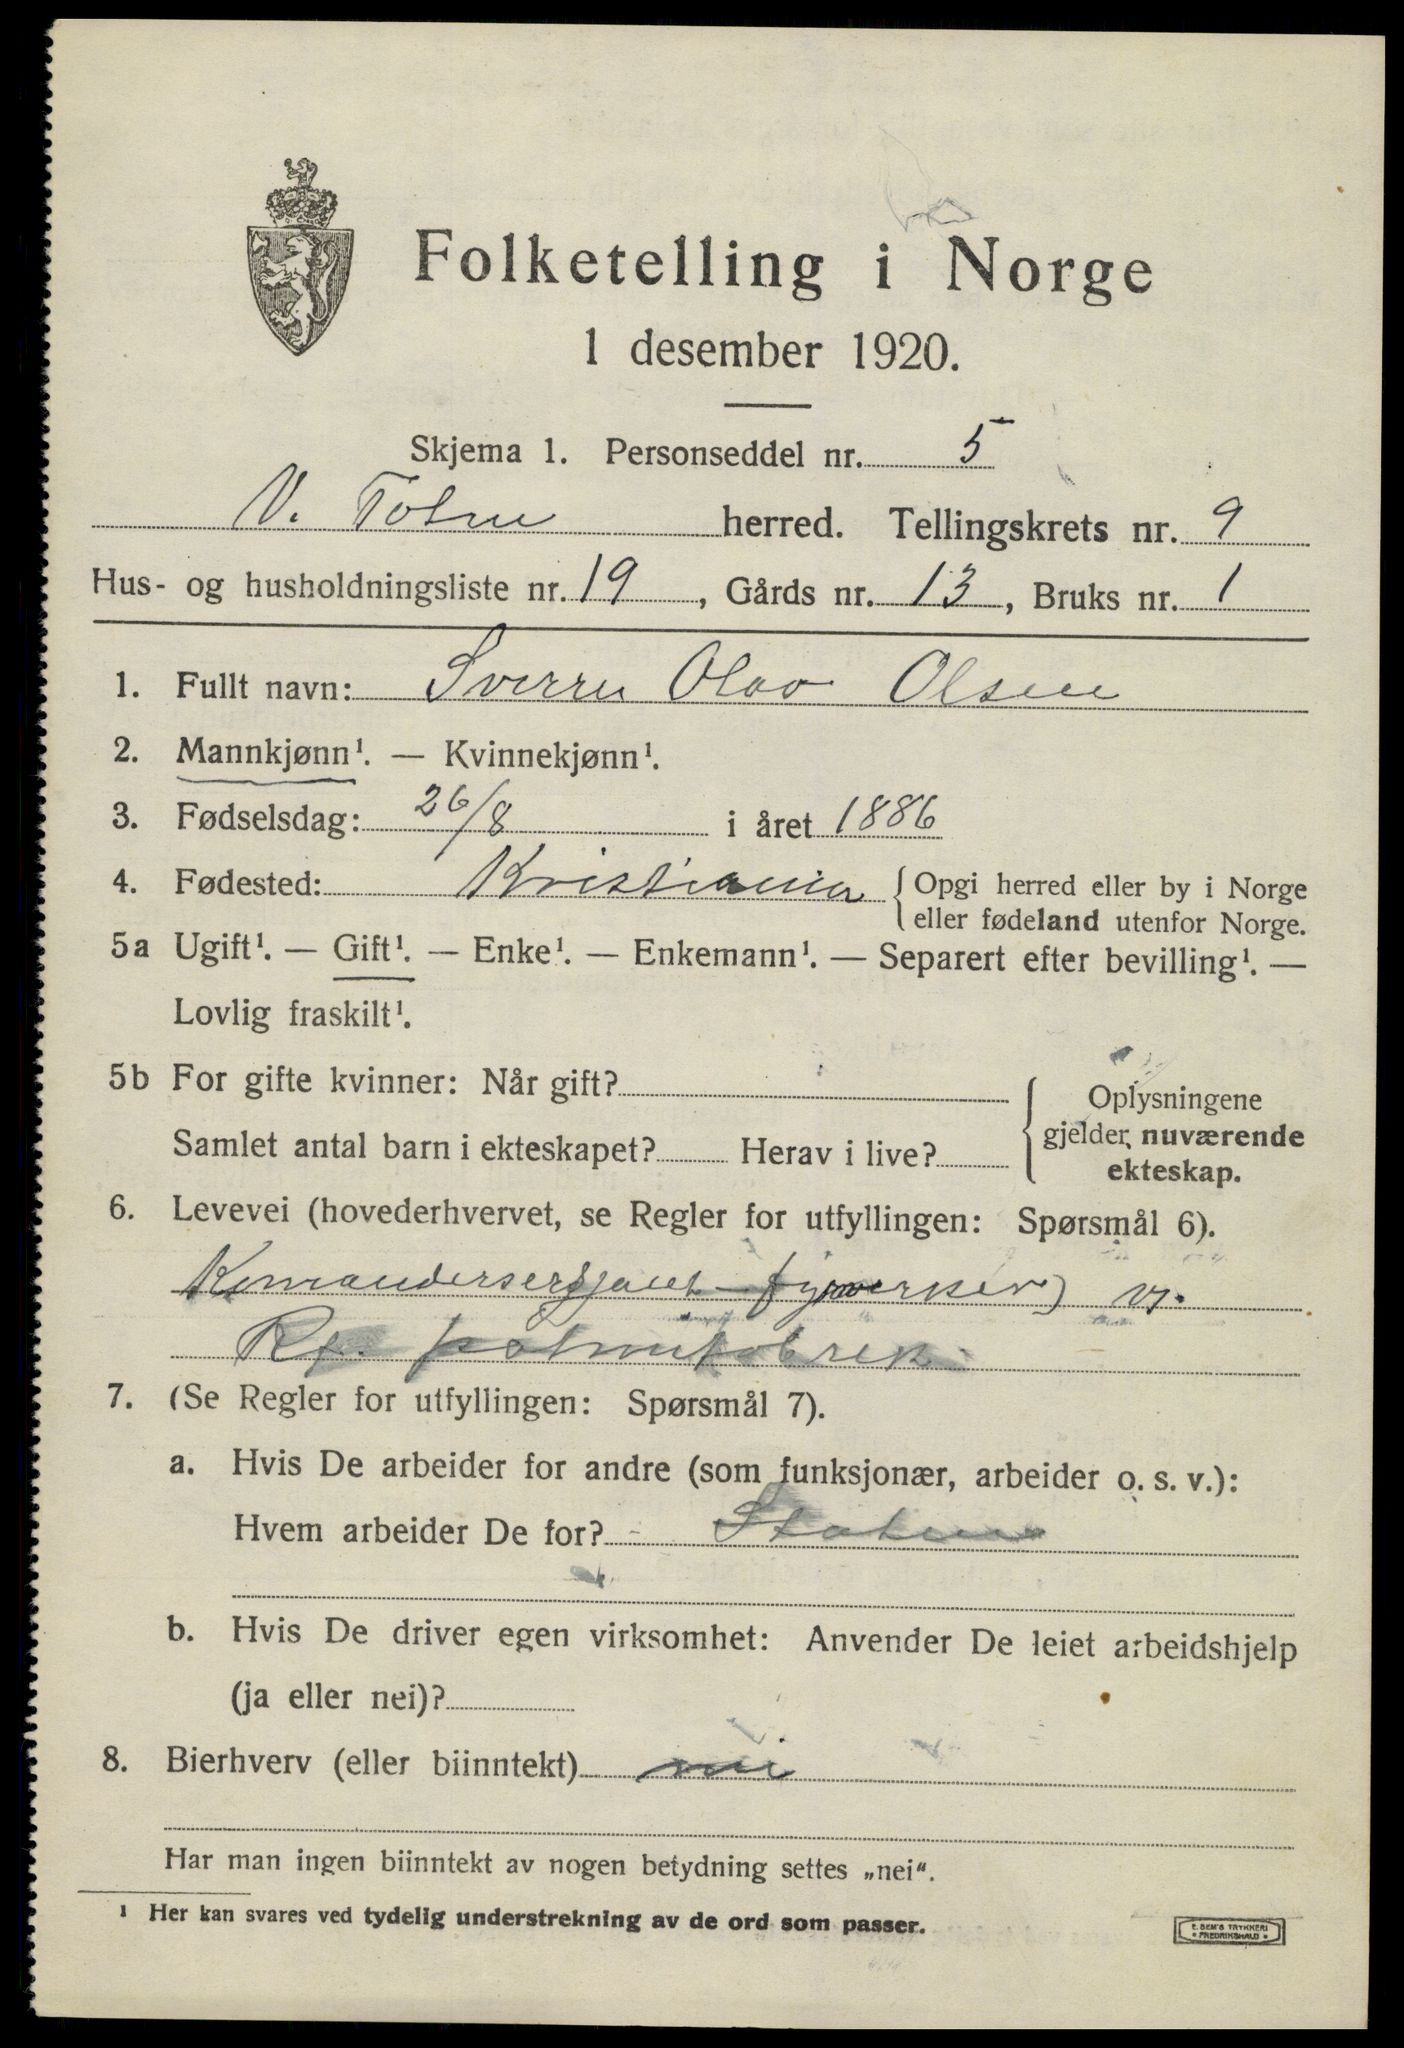 Folketelling i Norge
1 desember 1920.
Skjema 1. Personseddel nr. 5
V. Toten herred. Tellingskrets nr. 9
Hus- og husholdningsliste nr. 19, Gårds nr. 13, Bruks nr. 1
1. Fullt navn: Sverre Olav Olsen
2. Mannkjønn¹. — Kvinnekjønn¹.
3. Fødselsdag: 26/8 i året 1886
4. Fødested: Kristiania { Opgi herred eller by i Norge
eller fødeland utenfor Norge.
5a Ugift¹. — Gift¹. — Enke¹. — Enkemann¹. — Separert efter bevilling¹. —
Lovlig fraskilt¹.
5b For gifte kvinner: Når gift?
Samlet antal barn i ekteskapet? Herav i live?
Oplysningene
gjelder nuværende
ekteskap.
6. Levevei (hovederhvervet, se Regler for utfyllingen: Spørsmål 6).
Komandersersjant fyrverker) v.
Rf. patronfabrik
7. (Se Regler for utfyllingen: Spørsmål 7).
a. Hvis De arbeider for andre (som funksjonær, arbeider o. s. v.):
Hvem arbeider De for? Staten
b. Hvis De driver egen virksomhet: Anvender De leiet arbeidshjelp
(ja eller nei)?
8. Bierhverv (eller biinntekt) nei
Har man ingen biinntekt av nogen betydning settes „nei“.
¹ Her kan svares ved tydelig understrekning av de ord som passer.
E. SEM'S TRYKKERI
* FREDRIKSHALD *